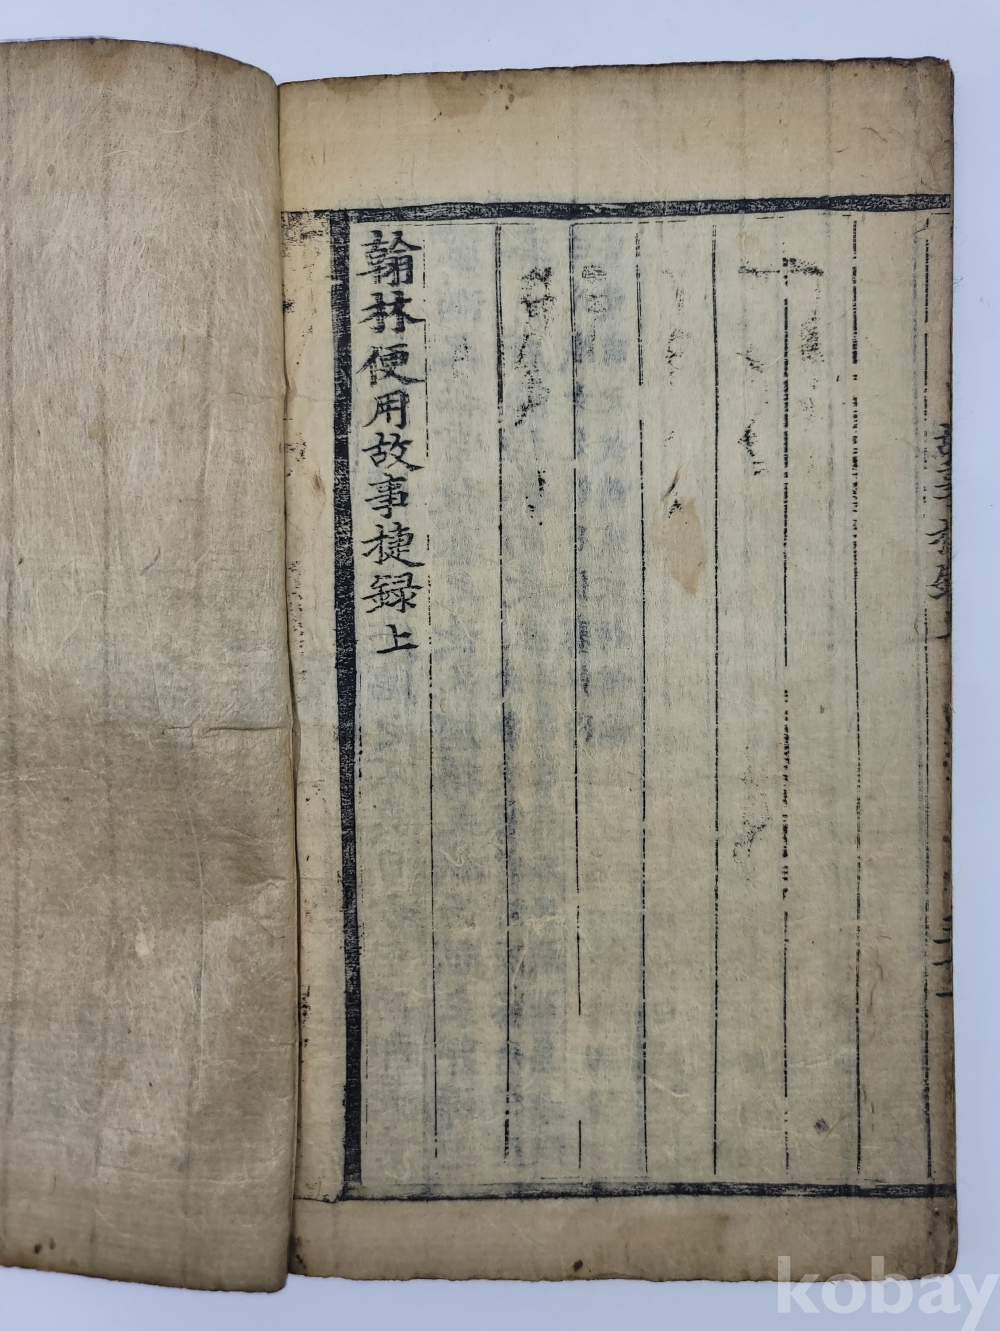 翰林便用故事捷録上
kobay